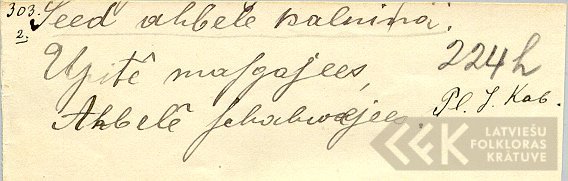 303. Seed ahbele kalniņâ.
2.
Upitê masgajees, 224h
Ahbelê schahwejees. Pl. J. Kab.
LATVIEŠU
FOLKLORAS
KRĀTUVE